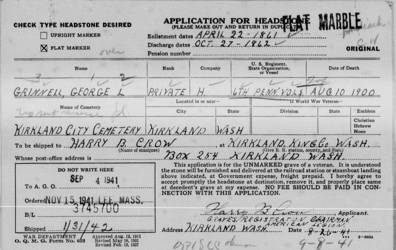 CHECK TYPE HEADSTONE DESIRED
UPRIGHT MARKER
FLAT MARKER
APPLICATION FOR HEADSTONE
(PLEASE MAKE OUT AND RETURN IN DUPLICATE)
FLAT MARBLE
Enlistment dates APRIL 22-1861
Discharge dates OCT. 27-1862
Pension number
ORIGINAL
Name
Rank
Company
U. S. Regiment, State Organization, or Vessel
Date of Death
GRINNELL, GEORGE L PRIVATE H 6TH PENN. VOLS AUG 10 1900
Name of Cemetery
Located in or near
If World War Veteran
Division
State
Emblem
Christian
Hebrew
None
KIRKLAND CITY CEMETERY KIRKLAND WASH
To be shipped to HARRY B CROW at KIRKLAND, KING CO. WASH.
Whose post-office address is BOX 254 KIRKLAND WASH.
DO NOT WRITE HERE
SEP 4 1941
To A. G. O.
Ordered NOV 15, 1941 LEE, MASS.
3745700
B/L
Shipped 1/31/42
This application is for the UNMARKED grave of a veteran. It is understood
the stone will be furnished and delivered at the railroad station or steamboat landing
above indicated, at Government expense, freight prepaid. I hereby agree to
accept promptly the headstone at destination, remove it, and properly place same
at decedent's grave at my expense. NO FEE SHOULD BE PAID IN CONNECTION WITH THIS APPLICATION.
Applicant.
GRAVES REGISTRATION CHAIRMAN
AMERICAN LEGION
Address KIRKLAND WASH.
WAR DEPARTMENT
O. Q. M. G. Form No. 623
9-8-41